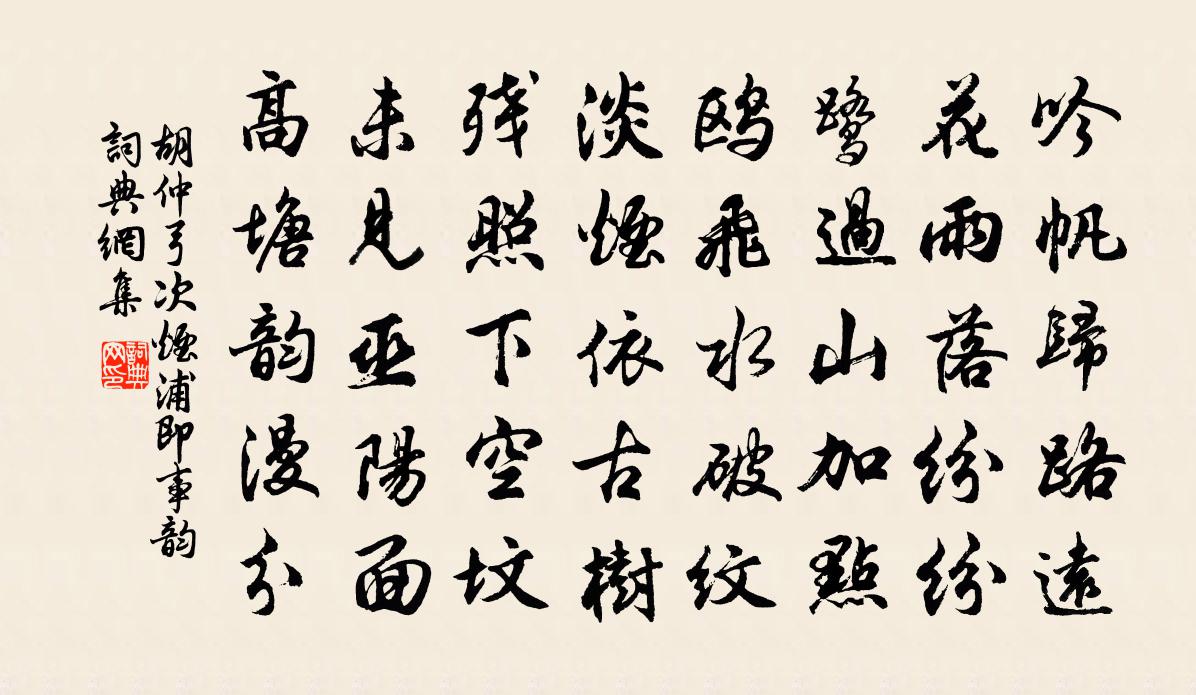 吟帆歸路遠
花雨落紛紛
鷺過山加點
鷗飛水破紋
淡煙依古樹
残照下空墳
未見巫陽面
高塘韵漫分
胡仲弓次煙浦即事韵
詞典網集
詞典网印